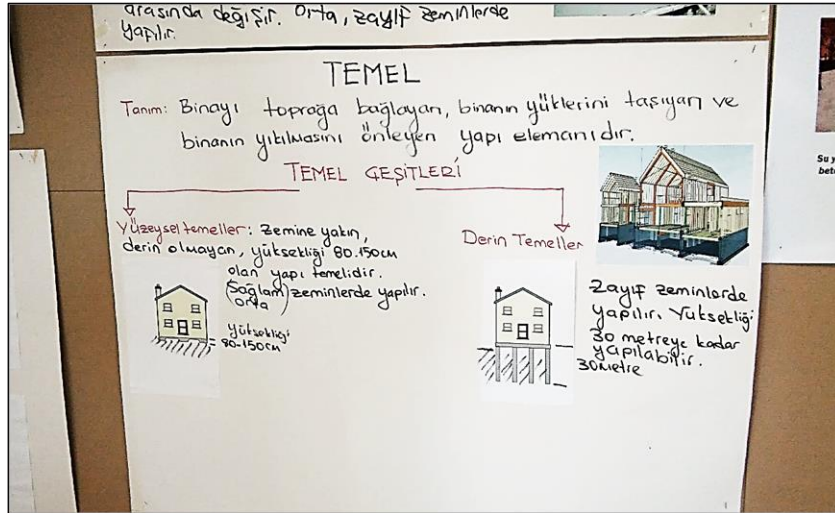 arasında değişir. Orta, zayıf zeminlerde
yapılır.
TEMEL
Tanım: Binayı toprağa bağlayan, binanın yüklerini taşıyan ve
binanın yıkılmasını önleyen yapı elemanıdır.
TEMEL ÇEŞİTLERİ
Yüzeysel temeller: Zemine yakın,
derin olmayan, yüksekliği 80-150cm
olan yapı temelidir.
(Sağlam) zeminlerde yapılır.
orta
yüksekliği
80-150cm
Derin Temeller
Zayıf zeminlerde
yapılır. Yüksekliği
30 metreye kadar
yapılabilir.
30metre
Su y
bet